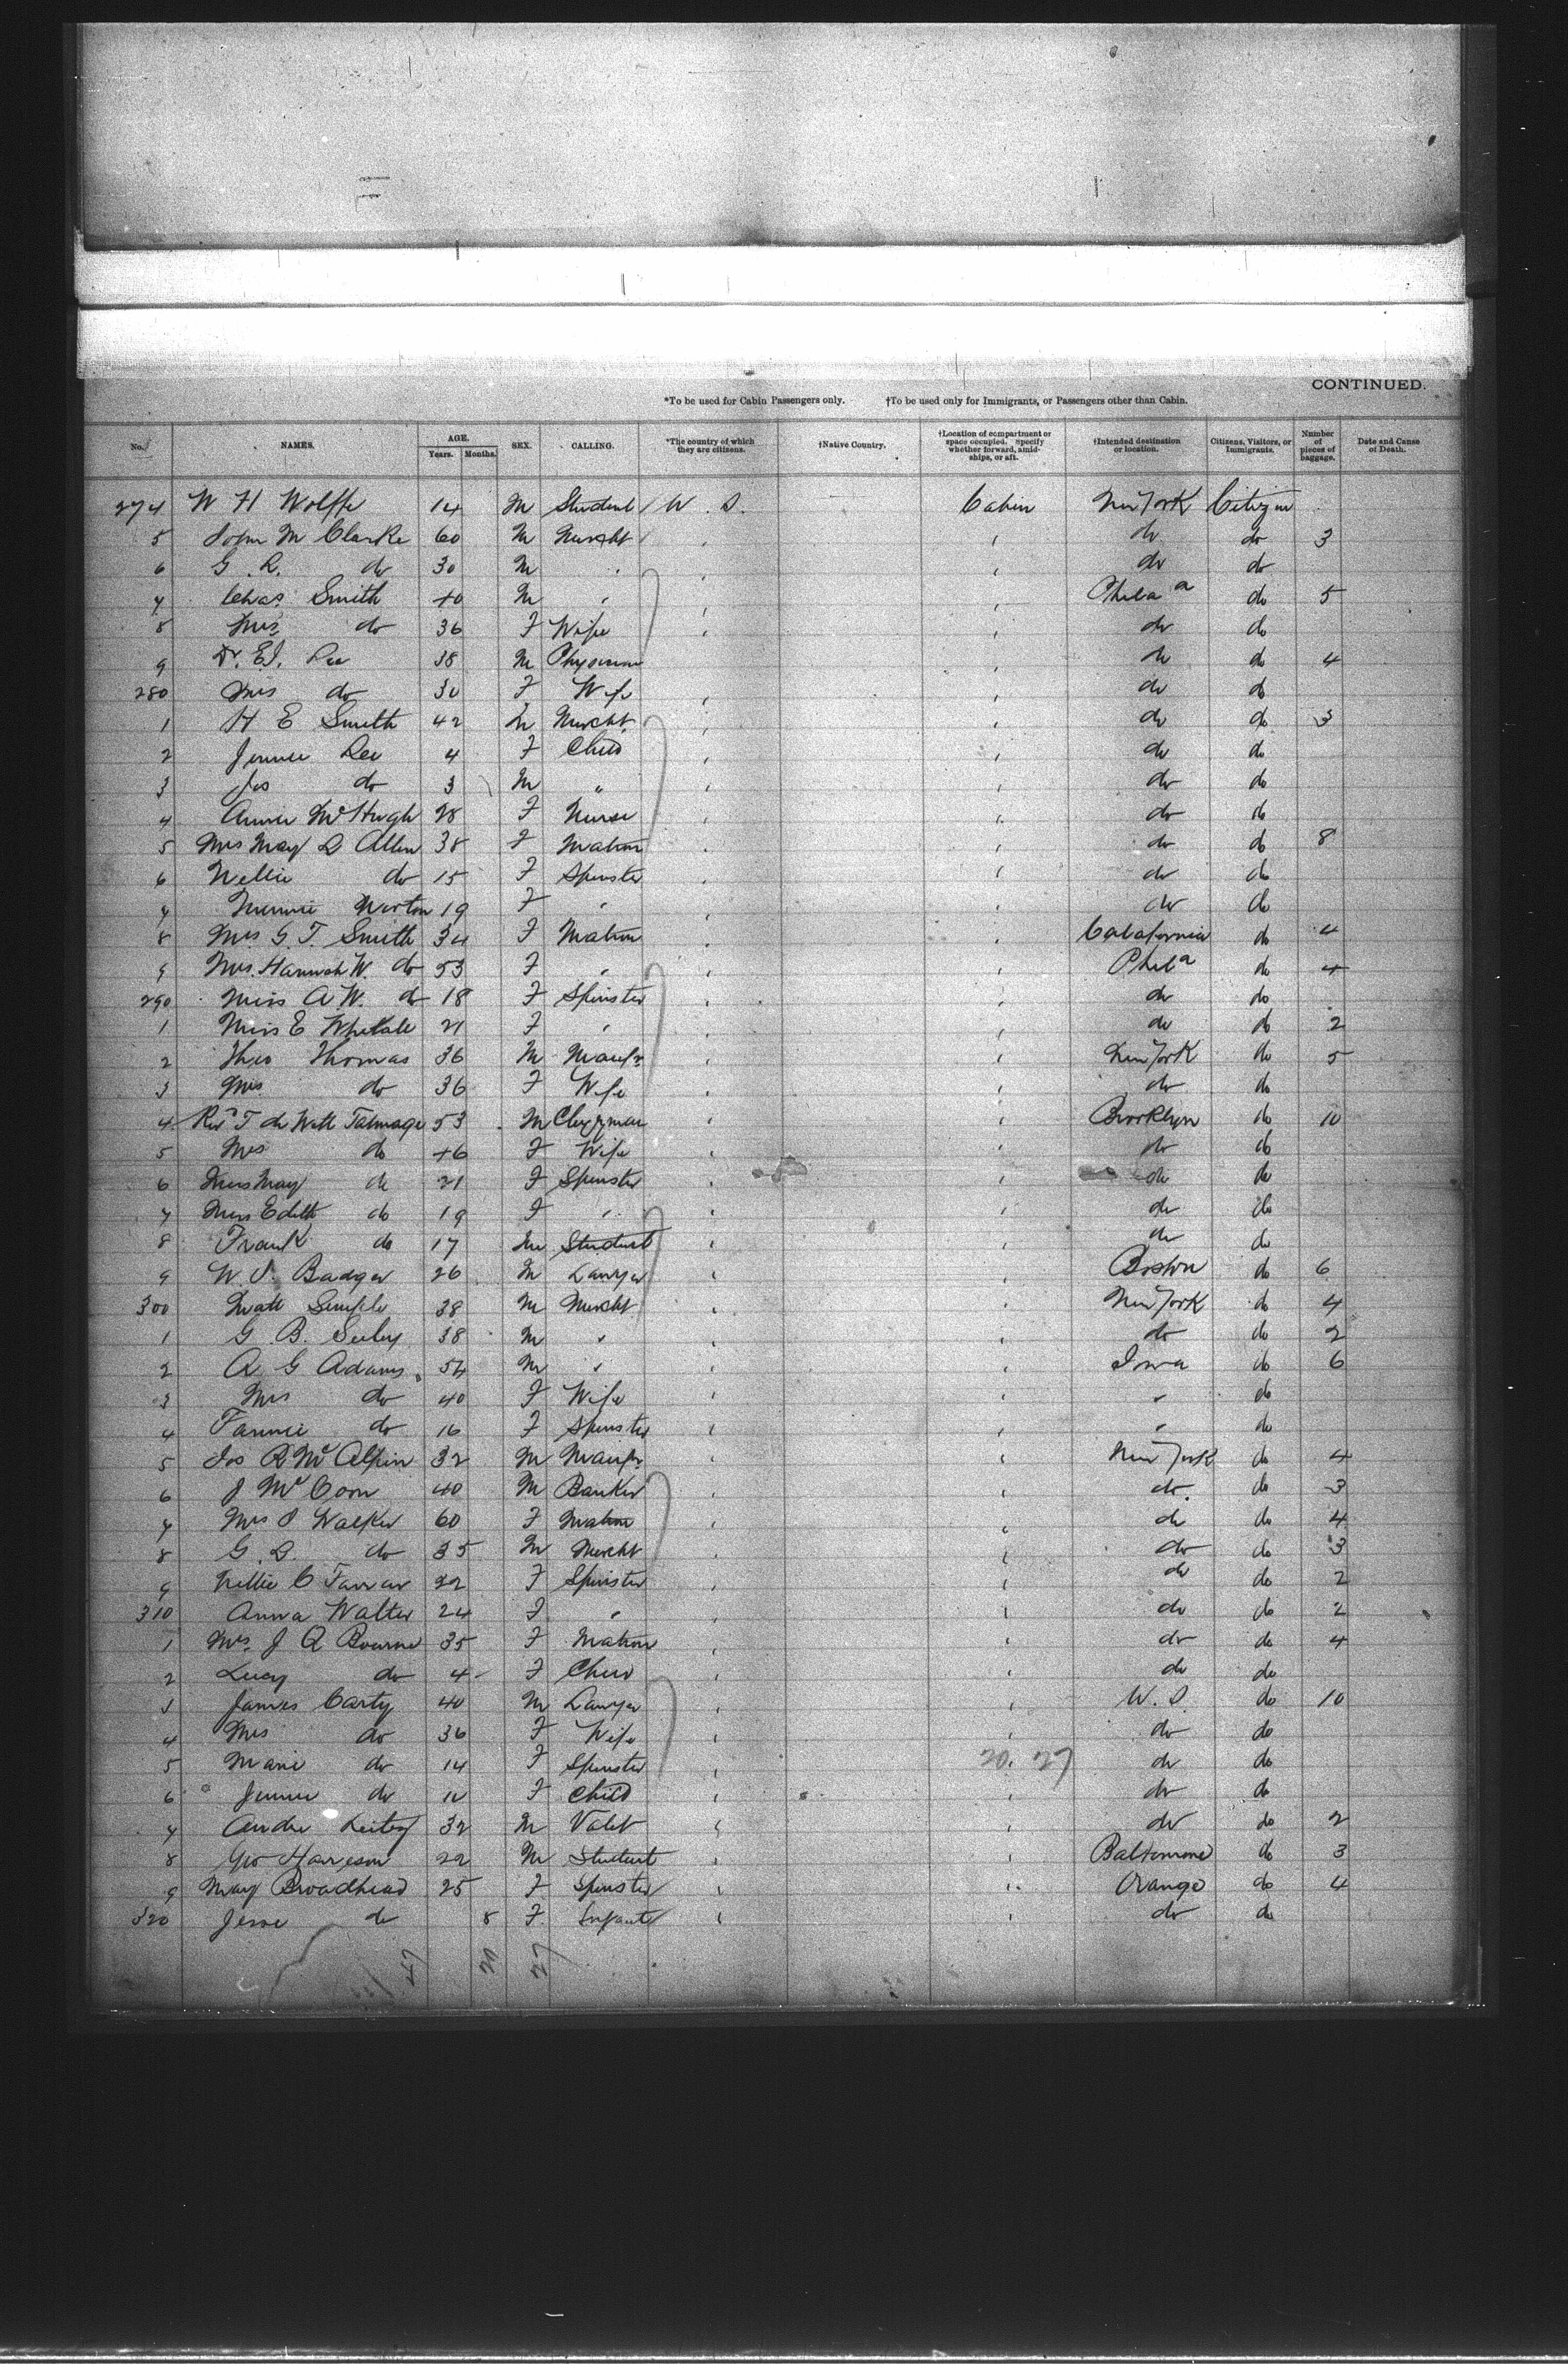 CONTINUED.
*To be used for Cabin Passengers only. †To be used only for Immigrants, or Passengers other than Cabin.
No. NAMES. AGE. Years. Months. SEX. CALLING. *The country of which they are citizens. †Native Country. †Location of compartment or space occupied. Specify whether forward, amidships, or aft. †Intended destination or location. Citizens, Visitors, or Immigrants. Number of pieces of baggage. Date and Cause of Death.
274 W H Wolffe 14 M Student U. S. Cabin New York Citizen
5 John M Clarke 60 M Mercht do do 3
6 G. R. do 30 M " do do
7 Chas Smith 40 M " Phila do 5
8 Mrs do 36 F Wife do do
9 Dr. E.J. Lee 38 M Physician do do 4
280 Mrs do 30 F Wife do do
1 H E Smith 42 M Mercht do do 3
2 Jennie Lee 4 F Child do do
3 Jos do 3 M " do do
4 Annie McHugh 28 F Nurse do do
5 Mrs May D Allen 38 F Matron do do 8
6 Nellie do 15 F Spinster do do
7 Minnie Norton 19 F " do do
8 Mrs G. T. Smith 34 F Matron Calafornia do 4
9 Mrs. Hannah W. do 53 F " Phila do 4
290 Miss A W. do 18 F Spinster do do
1 Miss E Whitall 21 F " do do 2
2 Theo Thomas 36 M Manfr New York do 5
3 Mrs do 36 F Wife do do
4 Rev T de Witt Talmage 53 M Clergyman Brooklyn do 10
5 Mrs do 46 F Wife do do
6 Miss May do 21 F Spinster do do
7 Miss Edith do 19 F " do do
8 Frank do 17 M Student do do
9 W. I. Badger 26 M Lawyer Boston do 6
300 Matt Semple 38 M Mercht New York do 4
1 G B. Seeley 38 M " do do 2
2 A G Adams 54 M " Iowa do 6
3 Mrs do 40 F Wife " do
4 Fannie do 16 F Spinster " do
5 Jos R McAlpin 32 M Manfr New York do 4
6 J McCoon 40 M Banker do do 3
7 Mrs S Walker 60 F Matron do do 4
8 G. S. do 35 M Mercht do do 3
9 Nellie C Farrar 22 F Spinster do do 2
310 Anna Walter 24 F " do do 2
1 Mrs J Q Bourne 35 F Matron do do 4
2 Lucy do 4 F Child do do
3 James Carty 40 M Lawyer U. S. do 10
4 Mrs do 36 F Wife do do
5 Marie do 14 F Spinster 20. 27 do do
6 Jennie do F Child do do
7 Andre 32 M Valet do do 2
8 Geo Harrison 22 M Student Baltimore do 3
9 May Broadhead 25 F Spinster Orange do 4
320 do 8 F Infant do do
47 20 27